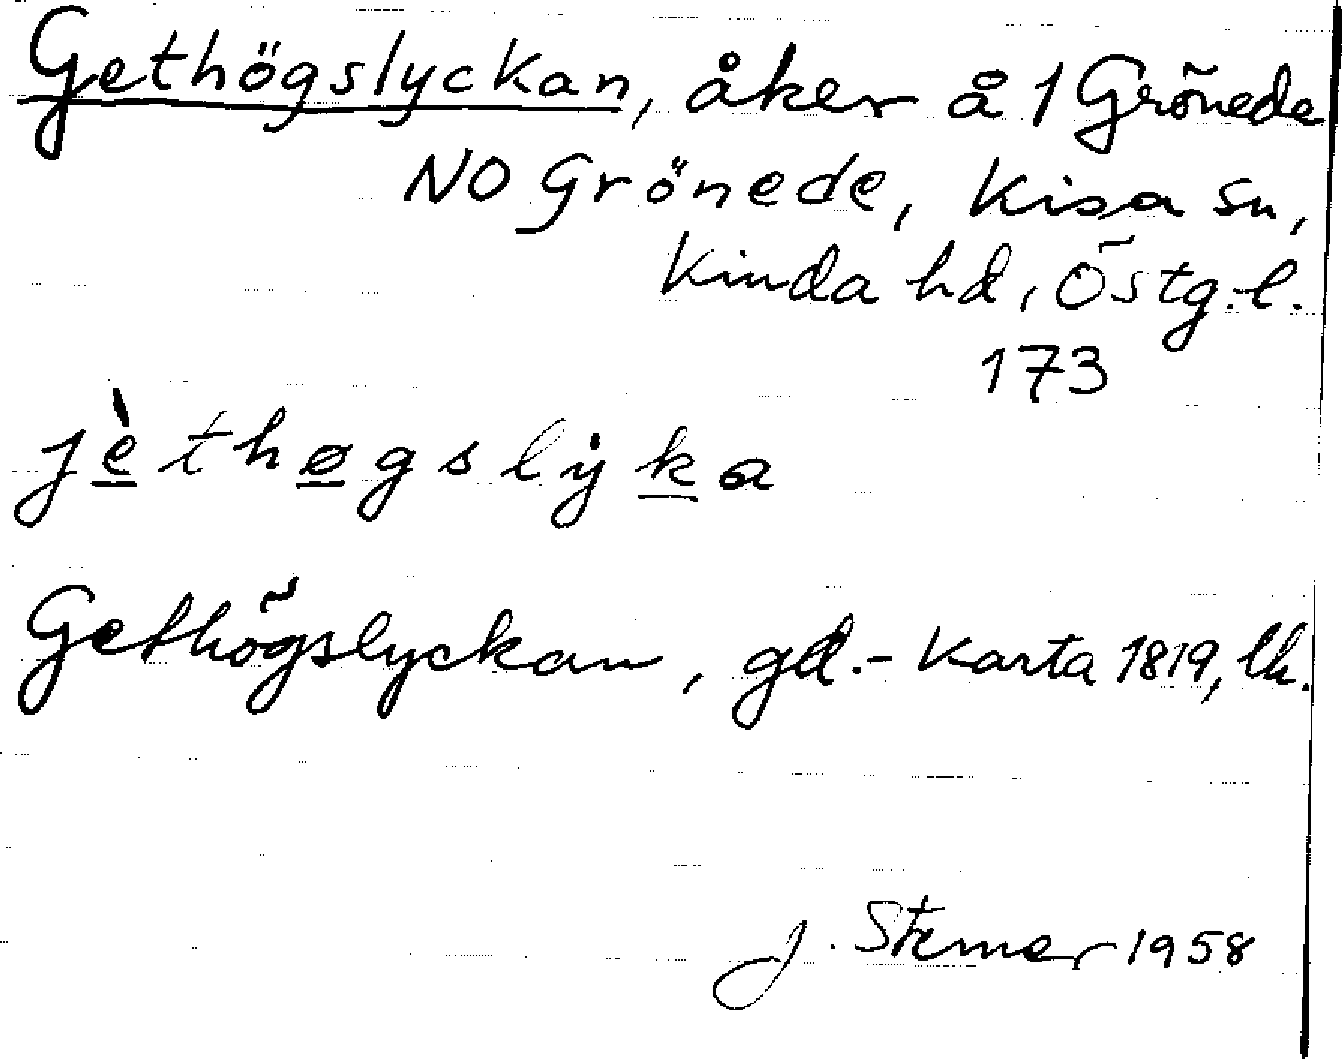 Gethögslyckan, åker å 1 Grönede
NO Grönede, Kisa sn,
Kinda hd, Östg.l.
173
jèthøgslyka
Gethögslyckan, gd.- Karta 1819, lk.
J. 1958